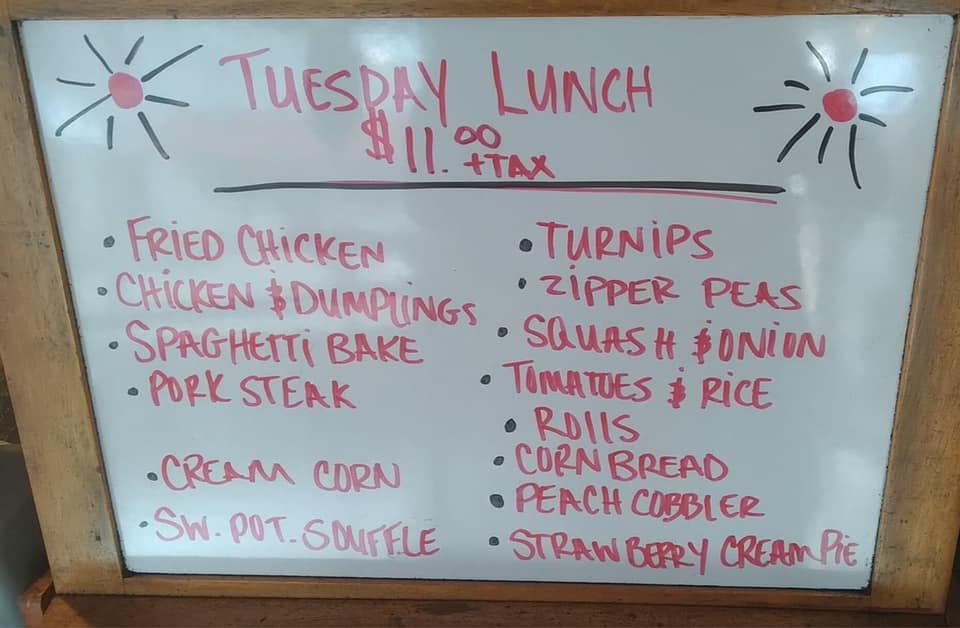 TUESDAY LUNCH
$11.00
+TAX
• FRIED CHICKEN
• CHICKEN & DUMPLINGS
• SPAGHETTI BAKE
• PORK STEAK
• CREAM CORN
• SW. POT. SOUFFLE
• TURNIPS
• ZIPPER PEAS
• SQUASH & ONION
• TOMATOES & RICE
• ROLLS
• CORNBREAD
• PEACH COBBLER
• STRAWBERRY CREAM PIE